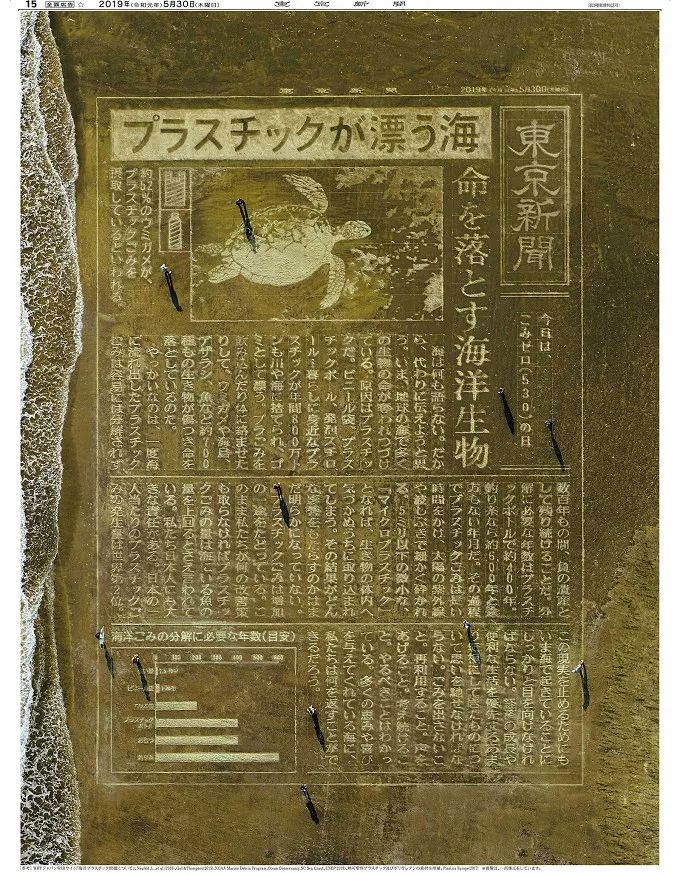 15 全面広告 ☆ 2019年(令和元年)5月30日(木曜日) 東京新聞
東京新聞 2019年(令和元年)5月30日(木曜日)
東京新聞
プラスチックが漂う海
命を落とす海洋生物
今日は、
ごみゼロ(530)の日
約52%のウミガメが、
プラスチックごみを
摂取しているといわれる。
海は何も語らない。だか
ら、代わりに伝えようと思
う。いま、地球の海で多く
の生物の命が奪われつづけ
ている。原因はプラスチッ
クだ。ビニール袋、プラス
チックボトル、発泡スチロ
ール…暮らしに身近なプラ
スチックが年間800万ト
ンも川や海に捨てられ、ゴ
ミとして漂う。プラごみを
飲み込んだり体に絡ませた
りして、ウミガメや海鳥、
アザラシ、魚など約700
種もの生き物が傷つき命を
落としているのだ。
やっかいなのは、一度海
に流れ出したプラスチック
ごみは容易には分解されず、
数百年もの間、負の遺産と
して残り続けることだ。分
解に必要な年数はプラスチ
ックボトルで約400年。
釣り糸なら約600年と途
方もない年月だ。その過程
でプラスチックごみは長い
時間をかけ、太陽の紫外線
や激しい波で細かく砕かれ
る。5ミリ以下の微小な
「マイクロプラスチック」
となれば、生き物の体内へ
気づかぬうちに取り込まれ
てしまう。その結果がどん
な影響をもたらすのかはま
だ明らかになっていない。
プラスチックごみは増加
の一途をたどっている。こ
のまま私たちが何の改善策
も取らなければプラスチッ
クごみの量は海にいる魚の
量を上回るとさえ言われて
いる。私たち日本人にも大
きな責任がある。日本の一
人当たりのプラスチックご
みの発生量は世界第2位。
この現実を止めるためにも
いま海で起きていることに
しっかりと目を向けなけれ
ばならない。経済の成長や
便利な生活を優先するあま
り犠牲にしてきたものにつ
いて思いを馳せなければな
らない。ごみを出さないこ
と。再利用すること。声を
あげること。考え続けるこ
と。やるべきことはわかっ
ている。多くの恵みや喜び
を与えてくれている海に、
私たちは何を返すことがで
きるだろう。
海洋ごみの分解に必要な年数(目安)
0 100 200 300 400 500 600
ビニール袋
プラスチック
おむつ
釣り糸